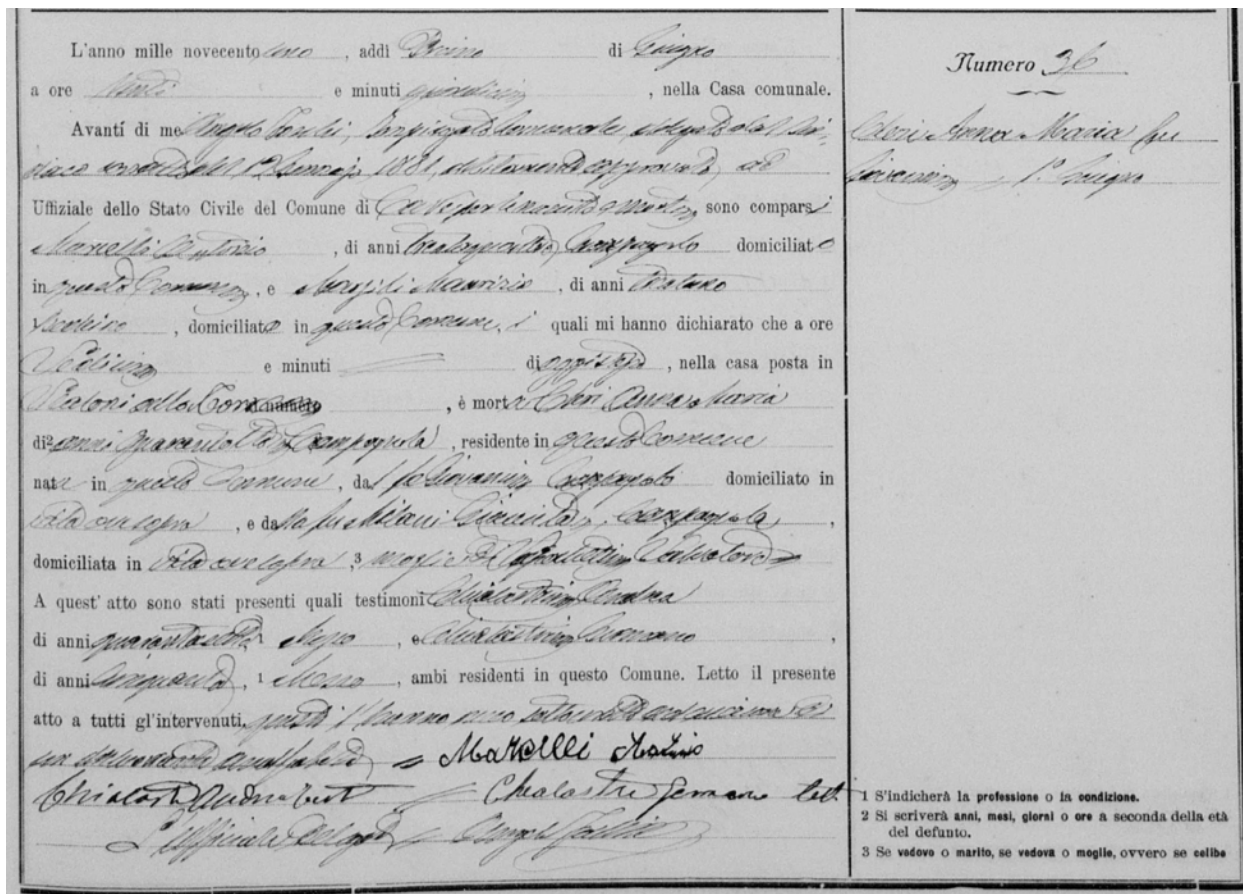 L'anno mille novecento uno, addì Primo di Giugno
a ore venti e minuti quindici, nella Casa comunale.
Avanti di me Angelo, Impiegato Comunale, delegato dal Sin-
daco con atto del 1° 1881, debitamente approvato, ad
Uffiziale dello Stato Civile del Comune di Cave per le nascite e morti, sono comparsi
Marcelli Antonio, di anni trentaquattro, Campagnolo domiciliato
in questo Comune, e Maurizio, di anni trentuno
, domiciliato in questo Comune, i quali mi hanno dichiarato che a ore
e minuti di oggi stesso, nella casa posta in
alla al numero, è morta Anna Maria
di² anni quarantotto Campagnola, residente in questo Comune
nata in questo Comune, dal fu Giovanni Campagnolo domiciliato in
vita cui sopra, e dalla fu Milani Giacinta, Campagnola,
domiciliata in vita cui sopra, ³ moglie di Salvatore
A quest' atto sono stati presenti quali testimoni Chialastri Andrea
di anni quarantasette, ¹ Messo, e Chialastri Germano,
di anni cinquanta, ¹ Messo, ambi residenti in questo Comune. Letto il presente
atto a tutti gl'intervenuti, questi l'hanno meco sottoscritto ad eccezione di
un dichiarante analfabeta =
Marcelli
Chialastri Andrea test
Chialastri Germano test.
L'Ufficiale Delegato Angelo
Numero 36
Anna Maria fu
Giovanni 1° Giugno
1 S'indicherà la professione o la condizione.
2 Si scriverà anni, mesi, giorni o ore a seconda della età
del defunto.
3 Se vedovo o marito, se vedova o moglie, ovvero se celibe